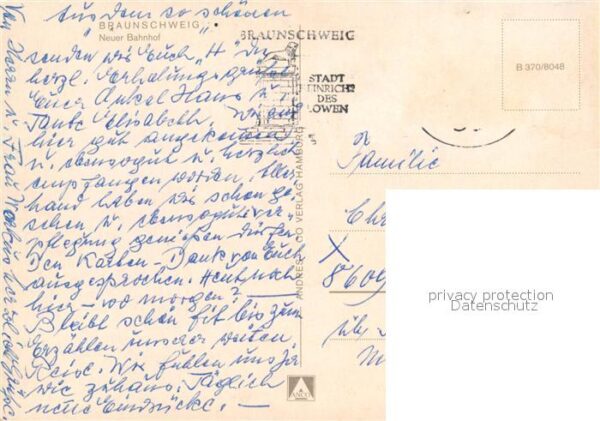 Aus dem so schönen
BRAUNSCHWEIG
Neuer Bahnhof
senden wir Euch
herzl. Erholungsgrüße
Euer Onkel Hans u.
Tante Elisabeth. Wir sind
hier gut angekommen
u. ebensogut u. herzlich
empfangen worden. Aller-
hand haben wir schon ge-
sehen u. ebensogute Ver-
pflegung genießen dürfen.
Den Karten-Dank von Euch
ausgesprochen. Heut noch
hier - wo morgen?
Bleibt schön fit bis zum
Erzählen unserer weiten
Reise. Wir fühlen uns ja
wie zuhaus. Täglich
neue Eindrücke. —
Von Herrn u. Frau
BRAUNSCHWEIG
STADT
HEINRICHS
DES
LÖWEN
B 370/8048
ANDRES + CO VERLAG HAMBURG
ANCO
Familie
Chr
X
8609
über
privacy protection
Datenschutz